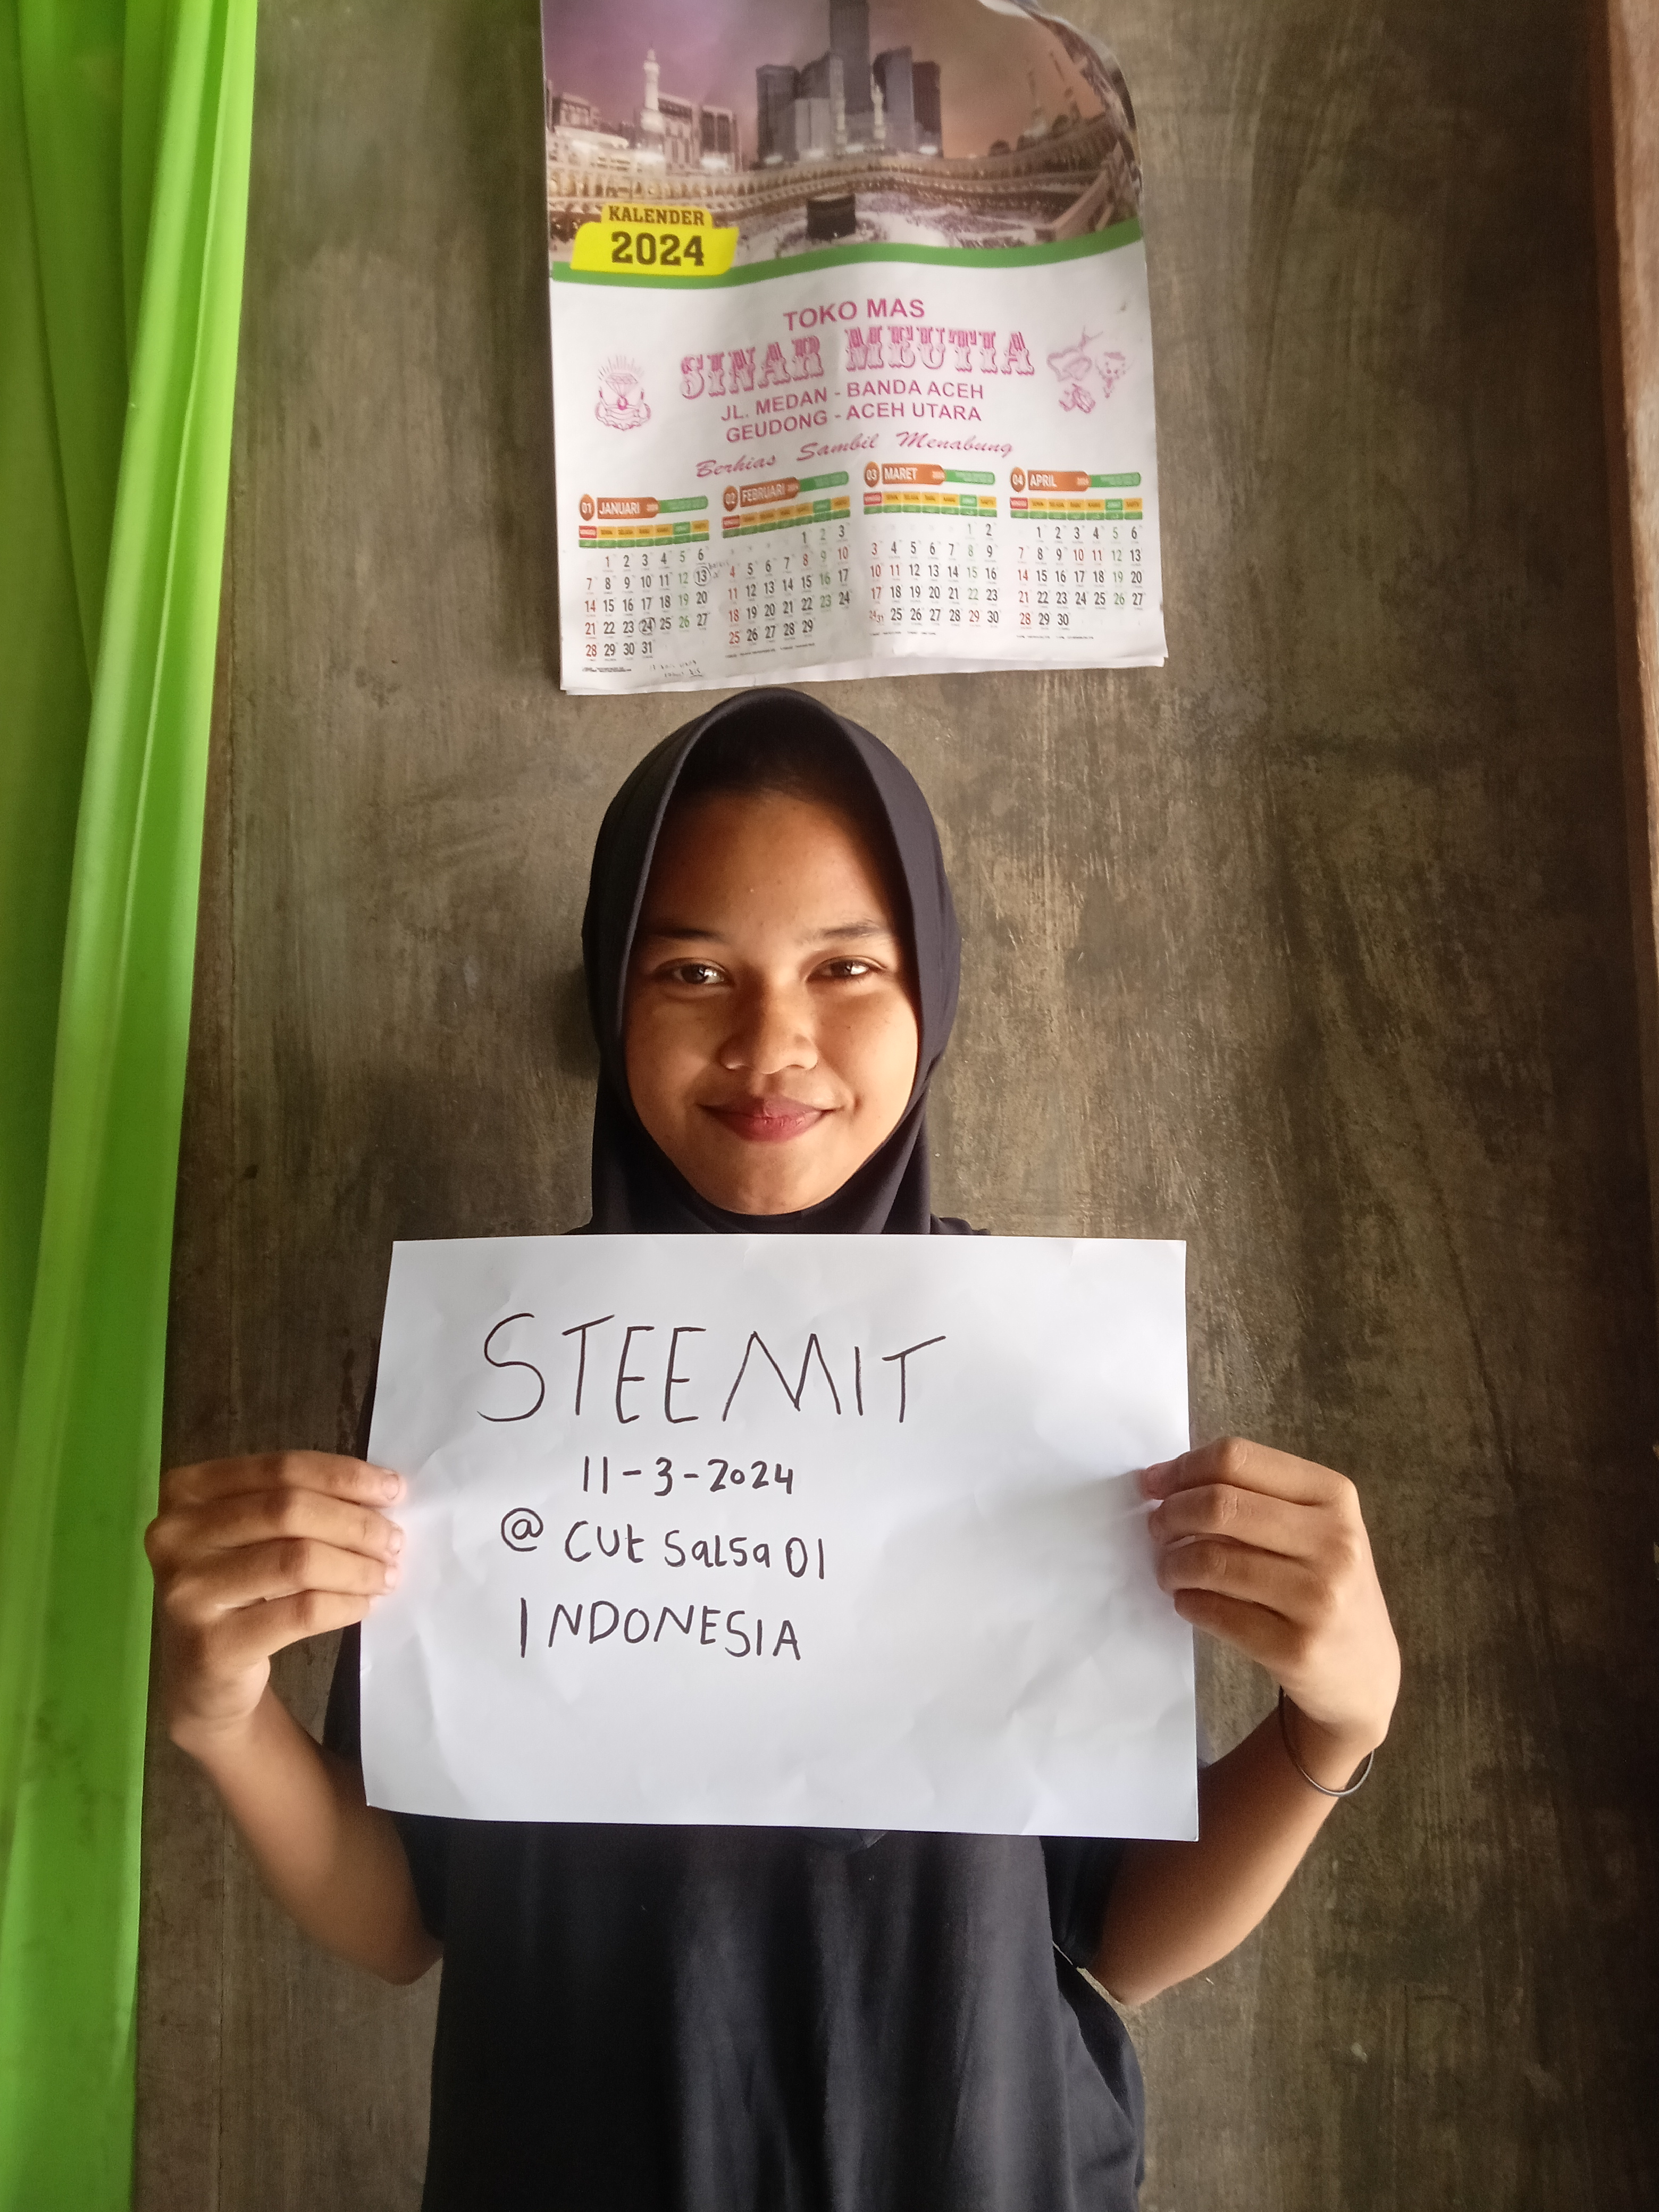 KALENDER
2024
TOKO MAS
SINAR MEUTIA
JL. MEDAN - BANDA ACEH
GEUDONG - ACEH UTARA
Berhias Sambil Menabung
01 JANUARI 2024
1 2 3 4 5 6
7 8 9 10 11 12 13
14 15 16 17 18 19 20
21 22 23 24 25 26 27
28 29 30 31
02 FEBRUARI 2024
1 2 3
4 5 6 7 8 9 10
11 12 13 14 15 16 17
18 19 20 21 22 23 24
25 26 27 28 29
03 MARET 2024
1 2
3 4 5 6 7 8 9
10 11 12 13 14 15 16
17 18 19 20 21 22 23
24/31 25 26 27 28 29 30
04 APRIL 2024
1 2 3 4 5 6
7 8 9 10 11 12 13
14 15 16 17 18 19 20
21 22 23 24 25 26 27
28 29 30
STEEMIT
11-3-2024
@ CUt SaLSa 01
INDONESIA